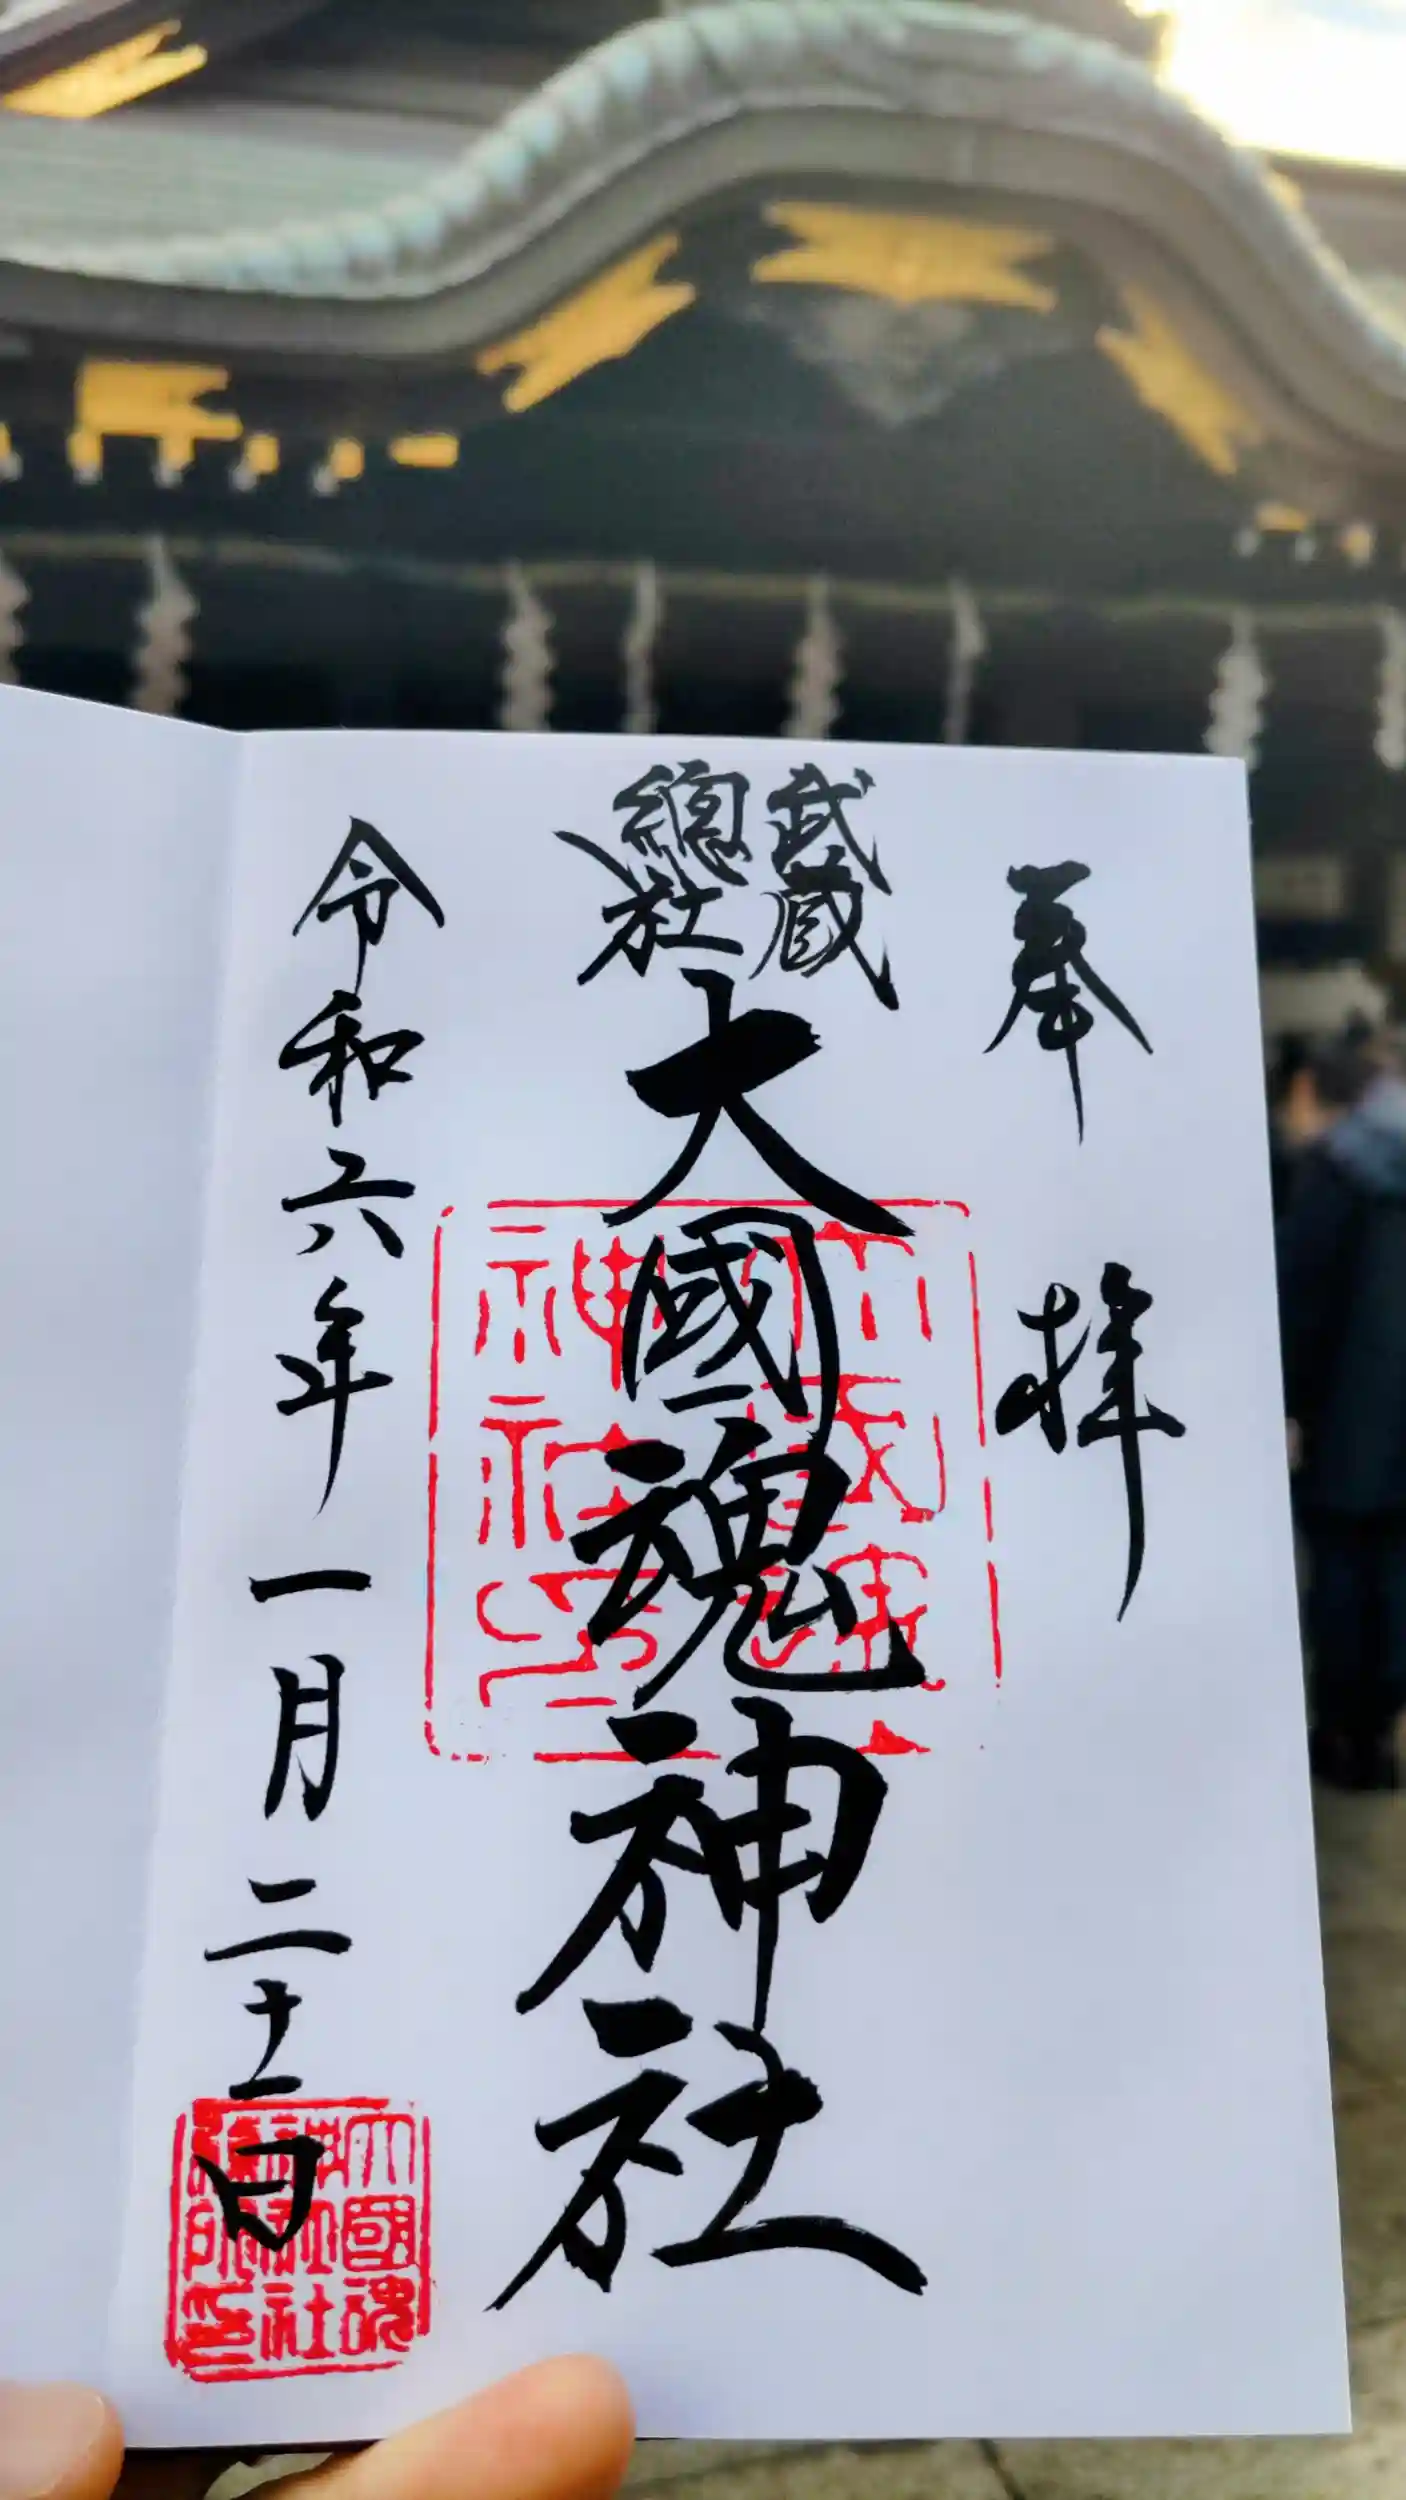 奉拝
武蔵
總社
大國魂神社
令和六年一月二十一日
大國魂
神社社
務所印